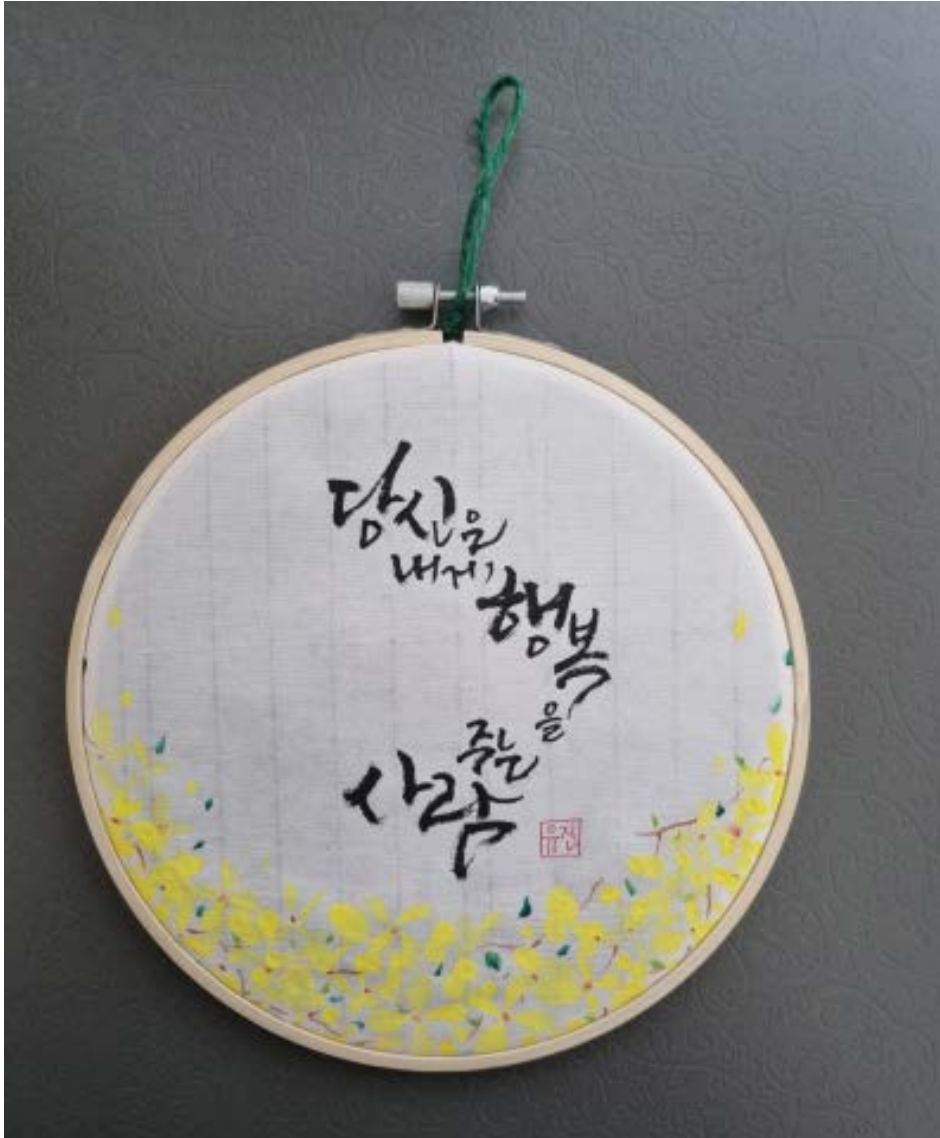 당신은
내게
행복
을
주는
사람
유진